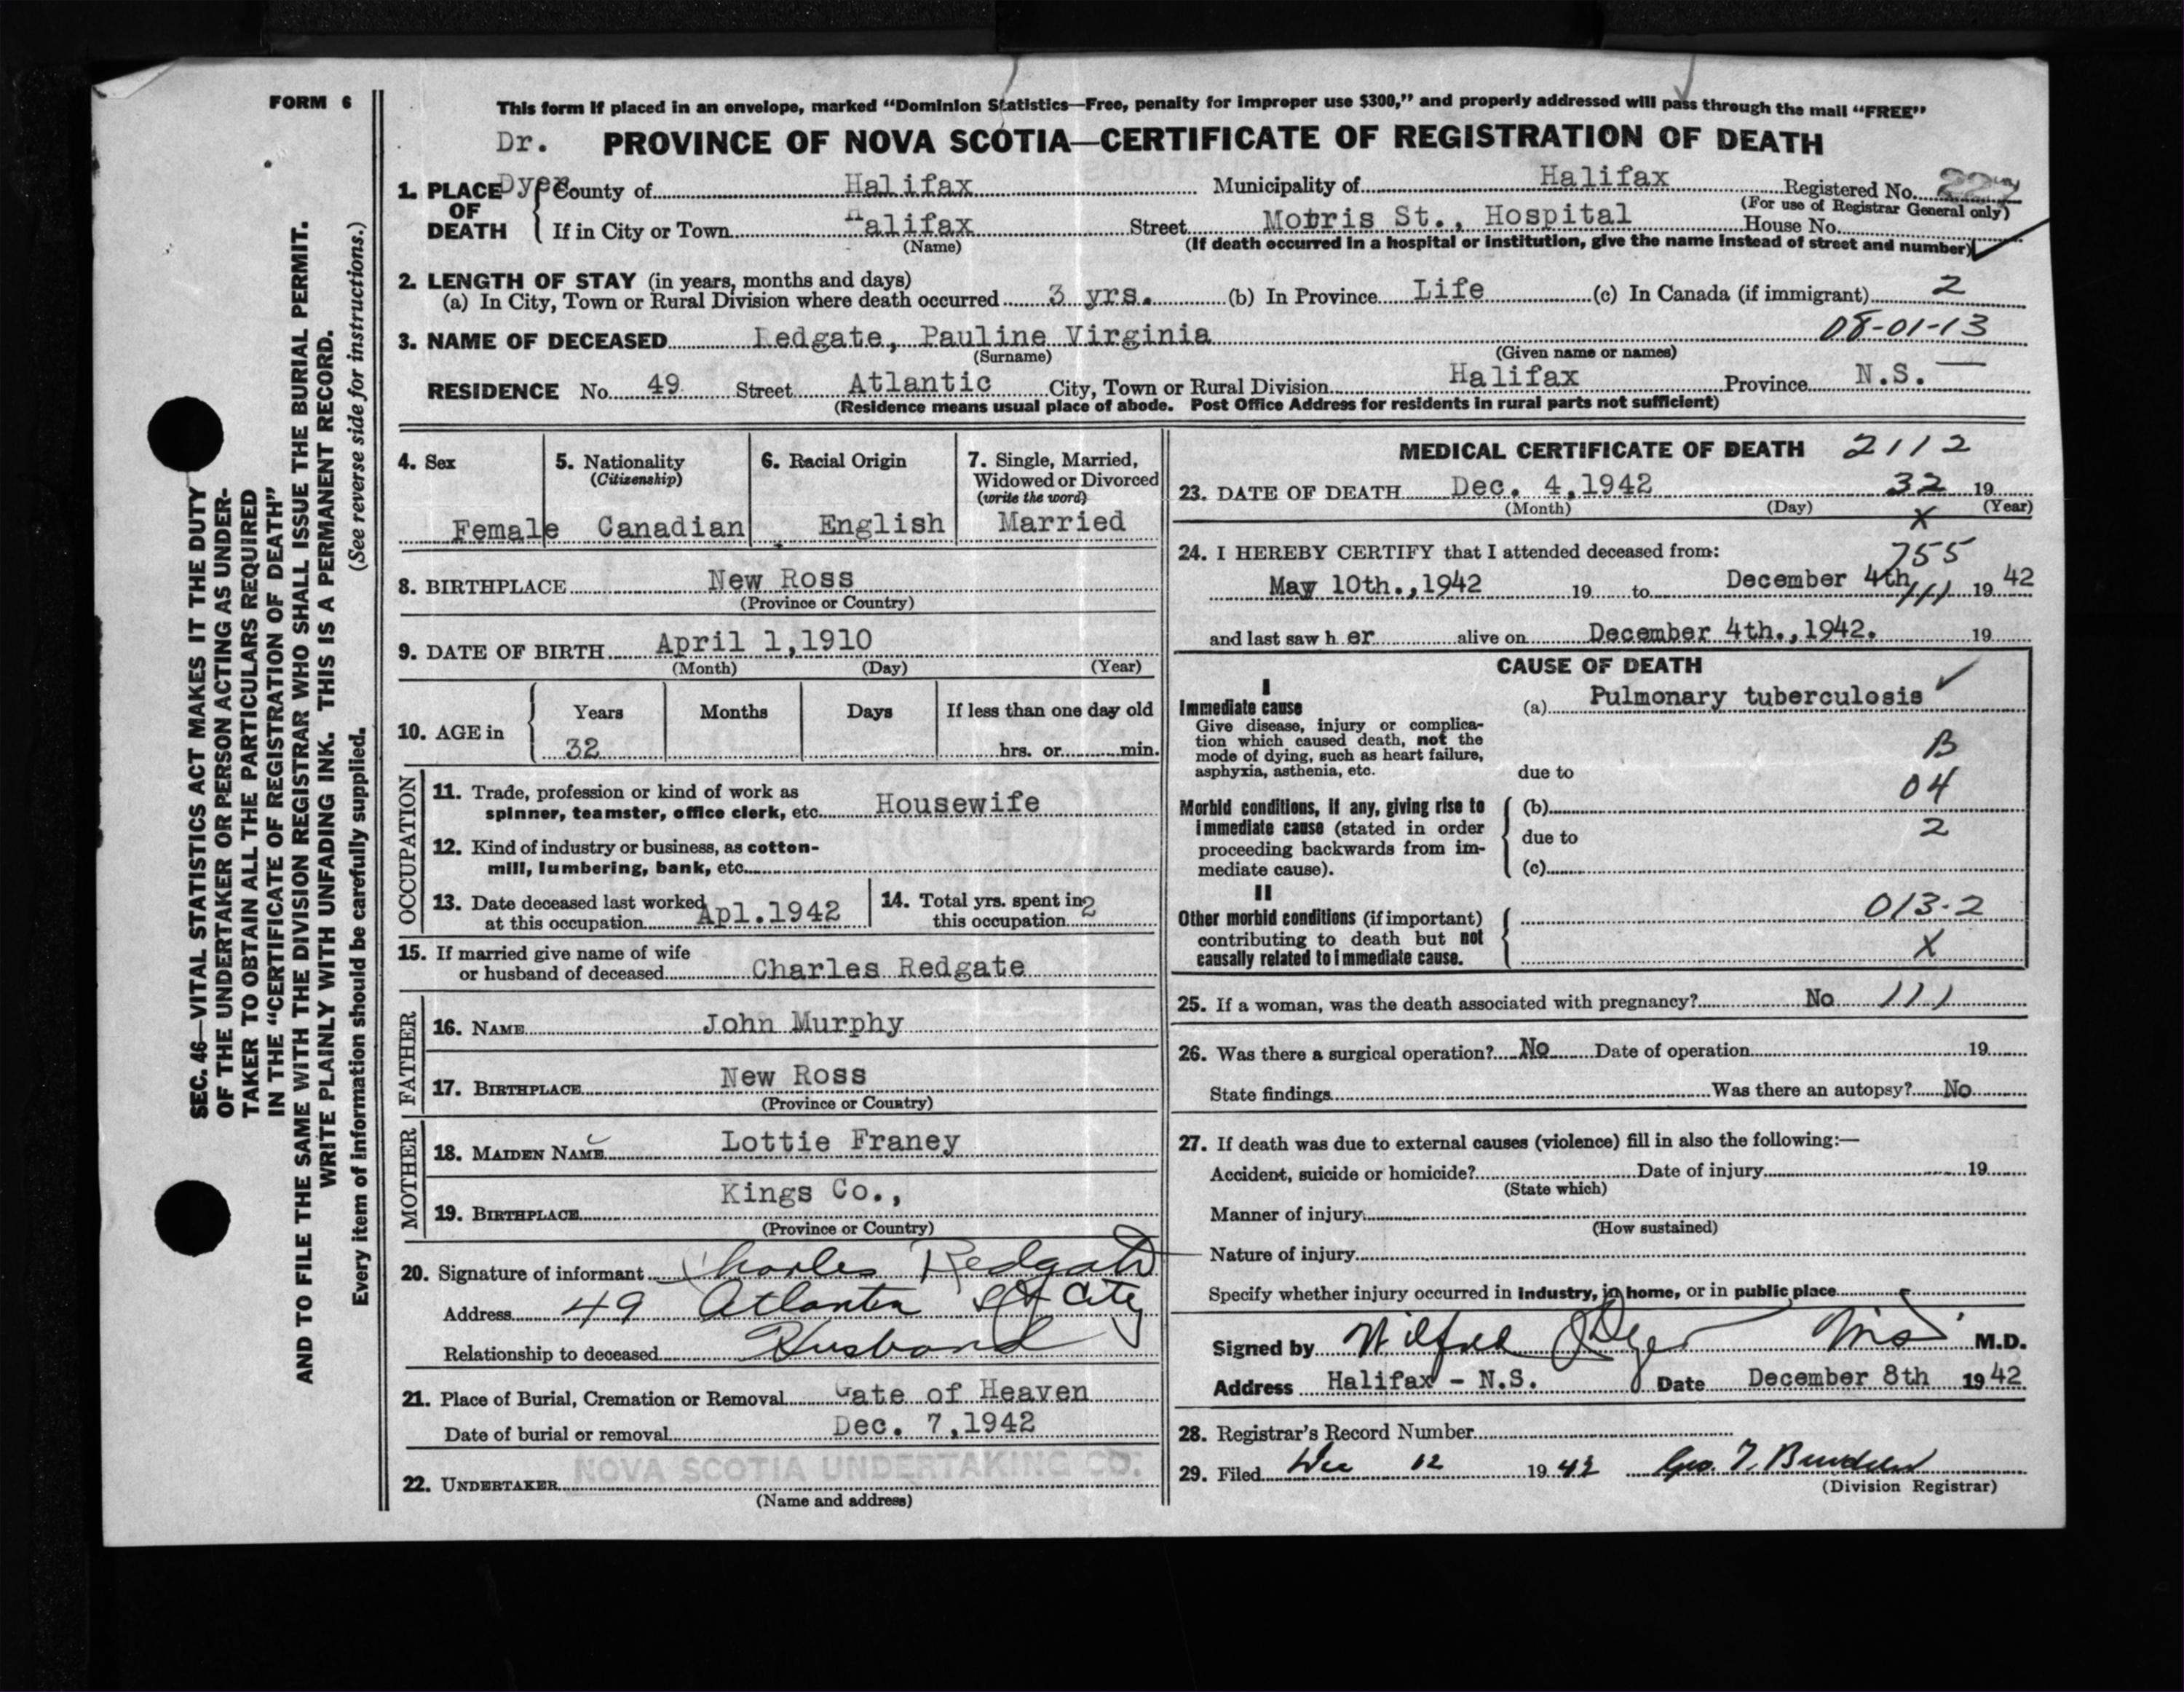 FORM 6
This form if placed in an envelope, marked "Dominion Statistics—Free, penalty for improper use $300," and properly addressed will pass through the mail "FREE"
Dr. PROVINCE OF NOVA SCOTIA—CERTIFICATE OF REGISTRATION OF DEATH
Dyer
1. PLACE OF DEATH County of Halifax Municipality of Halifax Registered No.
(For use of Registrar General only)
If in City or Town Halifax Street Morris St., Hospital House No.
(Name) (If death occurred in a hospital or institution, give the name instead of street and number)
2. LENGTH OF STAY (in years, months and days)
(a) In City, Town or Rural Division where death occurred 3 yrs. (b) In Province Life (c) In Canada (if immigrant) 2
08-01-13
3. NAME OF DECEASED Redgate, Pauline Virginia
(Surname) (Given name or names)
RESIDENCE No. 49 Street Atlantic City, Town or Rural Division Halifax Province N.S.
(Residence means usual place of abode. Post Office Address for residents in rural parts not sufficient)
4. Sex 5. Nationality 6. Racial Origin 7. Single, Married,
(Citizenship) Widowed or Divorced
(write the word)
Female Canadian English Married
8. BIRTHPLACE New Ross
(Province or Country)
9. DATE OF BIRTH April 1,1910
(Month) (Day) (Year)
10. AGE in Years Months Days If less than one day old
32 hrs. or min.
OCCUPATION
11. Trade, profession or kind of work as
spinner, teamster, office clerk, etc. Housewife
12. Kind of industry or business, as cotton-
mill, lumbering, bank, etc.
13. Date deceased last worked
at this occupation Apl.1942
14. Total yrs. spent in
this occupation 2
15. If married give name of wife
or husband of deceased Charles Redgate
FATHER
16. NAME John Murphy
17. BIRTHPLACE New Ross
(Province or Country)
MOTHER
18. MAIDEN NAME Lottie Franey
19. BIRTHPLACE Kings Co.,
(Province or Country)
20. Signature of informant Charles Redgate
Address 49 Atlantic St City
Relationship to deceased Husband
21. Place of Burial, Cremation or Removal Gate of Heaven
Date of burial or removal Dec. 7,1942
22. UNDERTAKER NOVA SCOTIA UNDERTAKING CO.
(Name and address)
MEDICAL CERTIFICATE OF DEATH 2112
23. DATE OF DEATH Dec. 4,1942 32 19
(Month) (Day) (Year)
X
24. I HEREBY CERTIFY that I attended deceased from:
755
May 10th.,1942 19 to December 4th 19 42
111
and last saw her alive on December 4th.,1942. 19
CAUSE OF DEATH
I
Immediate cause (a) Pulmonary tuberculosis
Give disease, injury or complica-
tion which caused death, not the
mode of dying, such as heart failure,
asphyxia, asthenia, etc. due to
B
04
Morbid conditions, if any, giving rise to (b)
immediate cause (stated in order due to 2
proceeding backwards from im-
mediate cause). (c)
II
Other morbid conditions (if important) 013-2
contributing to death but not
causally related to immediate cause. X
25. If a woman, was the death associated with pregnancy? No 111
26. Was there a surgical operation? No Date of operation 19
State findings Was there an autopsy? No
27. If death was due to external causes (violence) fill in also the following:—
Accident, suicide or homicide? Date of injury 19
(State which)
Manner of injury
(How sustained)
Nature of injury
Specify whether injury occurred in industry, in home, or in public place
Signed by Wilfred Dyer M.D.
Address Halifax - N.S. Date December 8th 1942
28. Registrar's Record Number
29. Filed Dec 12 1942 Geo. T.
(Division Registrar)
SEC. 46—VITAL STATISTICS ACT MAKES IT THE DUTY
OF THE UNDERTAKER OR PERSON ACTING AS UNDER-
TAKER TO OBTAIN ALL THE PARTICULARS REQUIRED
IN THE "CERTIFICATE OF REGISTRATION OF DEATH"
AND TO FILE THE SAME WITH THE DIVISION REGISTRAR WHO SHALL ISSUE THE BURIAL PERMIT.
WRITE PLAINLY WITH UNFADING INK. THIS IS A PERMANENT RECORD.
Every item of information should be carefully supplied. (See reverse side for instructions.)